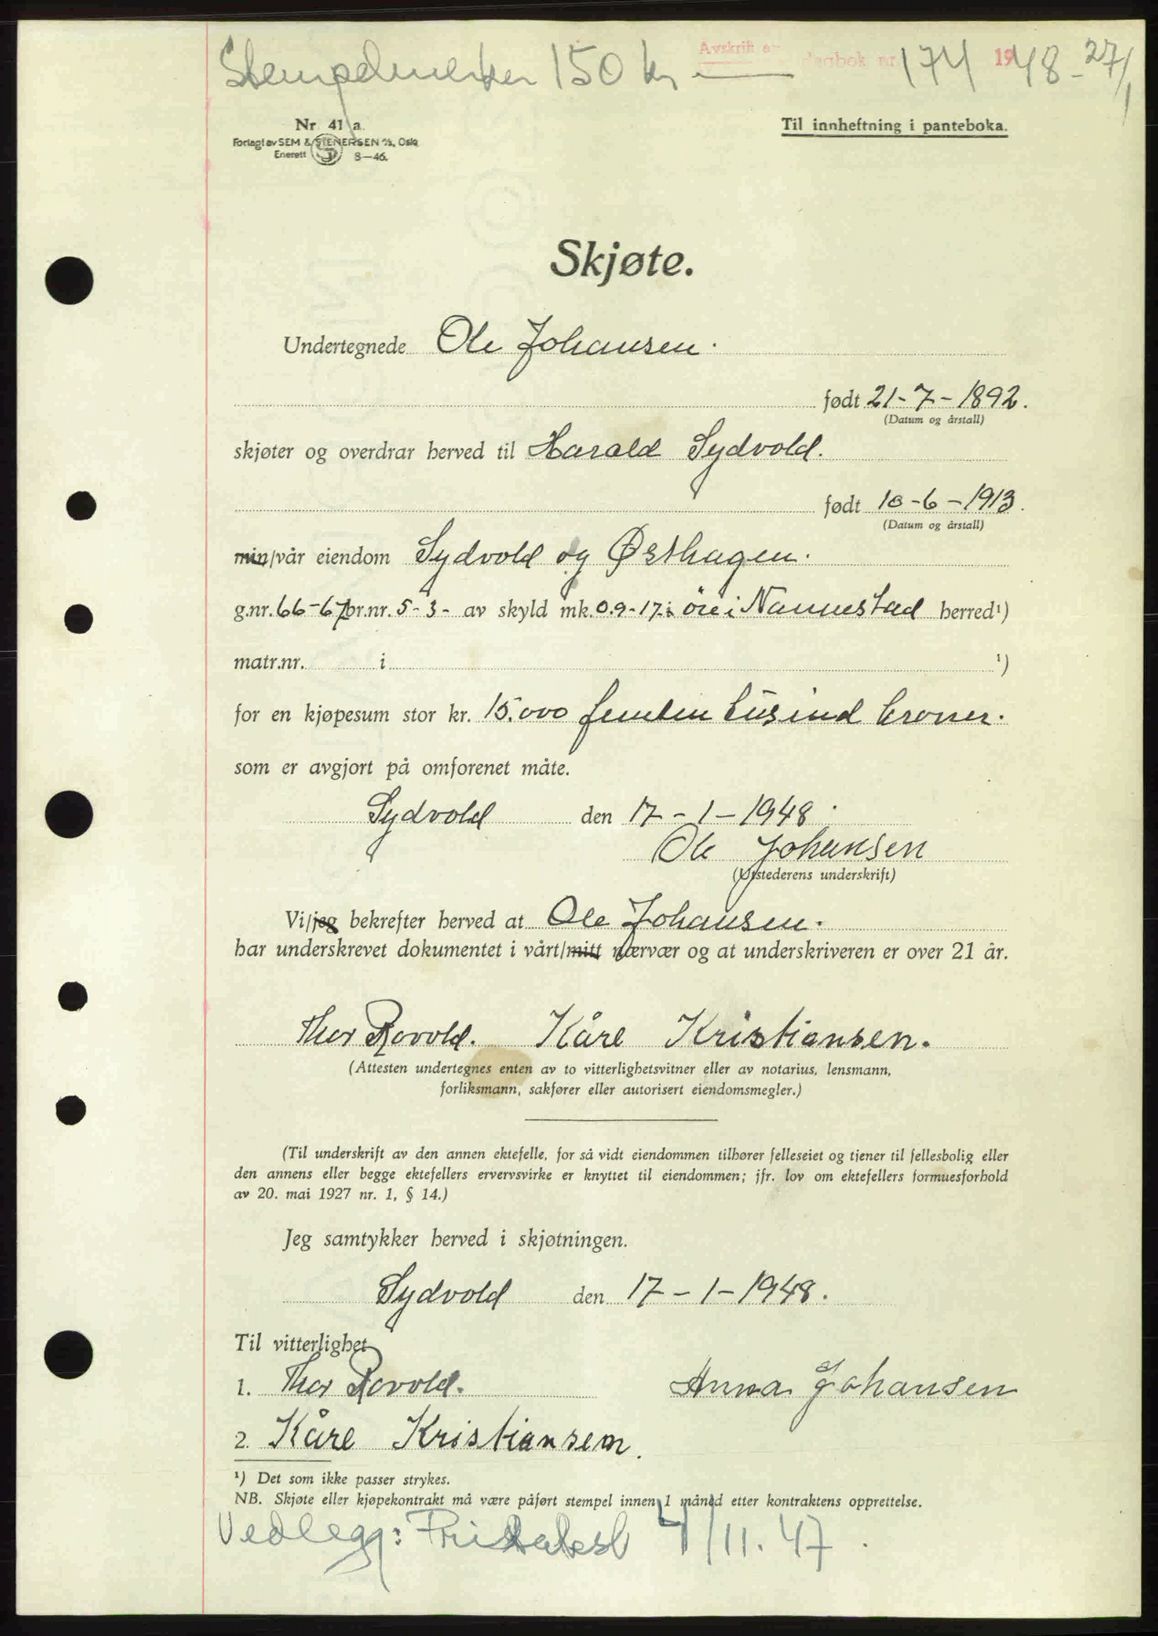 Stempelmerker 150 kr Avskrift av dagbok nr 174 1948 - 27/1
Nr. 41 a.
Til innheftning i panteboka.
Forlagt av SEM & STENERSEN A/S, Oslo
Enerett 8—46.
Skjøte.
Undertegnede Ole Johansen.
født 21-7-1892.
(Datum og årstall)
skjøter og overdrar herved til Harald Sydvold.
født 10-6-1913.
(Datum og årstall)
min/vår eiendom Sydvold og Østhagen.
g.nr. 66-67 br.nr. 5-3- av skyld mk. 0.9-17 øre i Nannestad herred¹)
matr.nr. i ¹)
for en kjøpesum stor kr. 15.000 femten tusind kroner.
som er avgjort på omforenet måte.
Sydvold den 17-1-1948.
Ole Johansen
(Utstederens underskrift)
Vi/jeg bekrefter herved at Ole Johansen.
har underskrevet dokumentet i vårt/mitt nærvær og at underskriveren er over 21 år.
Thor Rovold. Kåre Kristiansen.
(Attesten undertegnes enten av to vitterlighetsvitner eller av notarius, lensmann,
forliksmann, sakfører eller autorisert eiendomsmegler.)
(Til underskrift av den annen ektefelle, for så vidt eiendommen tilhører felleseiet og tjener til fellesbolig eller
den annens eller begge ektefellers ervervsvirke er knyttet til eiendommen; jfr. lov om ektefellers formuesforhold
av 20. mai 1927 nr. 1, § 14.)
Jeg samtykker herved i skjøtningen.
Sydvold den 17-1-1948.
Til vitterlighet
1. Thor Rovold. Anna Johansen
2. Kåre Kristiansen.
¹) Det som ikke passer strykes.
NB. Skjøte eller kjøpekontrakt må være påført stempel innen 1 måned etter kontraktens opprettelse.
Vedlegg: 4/11.47.